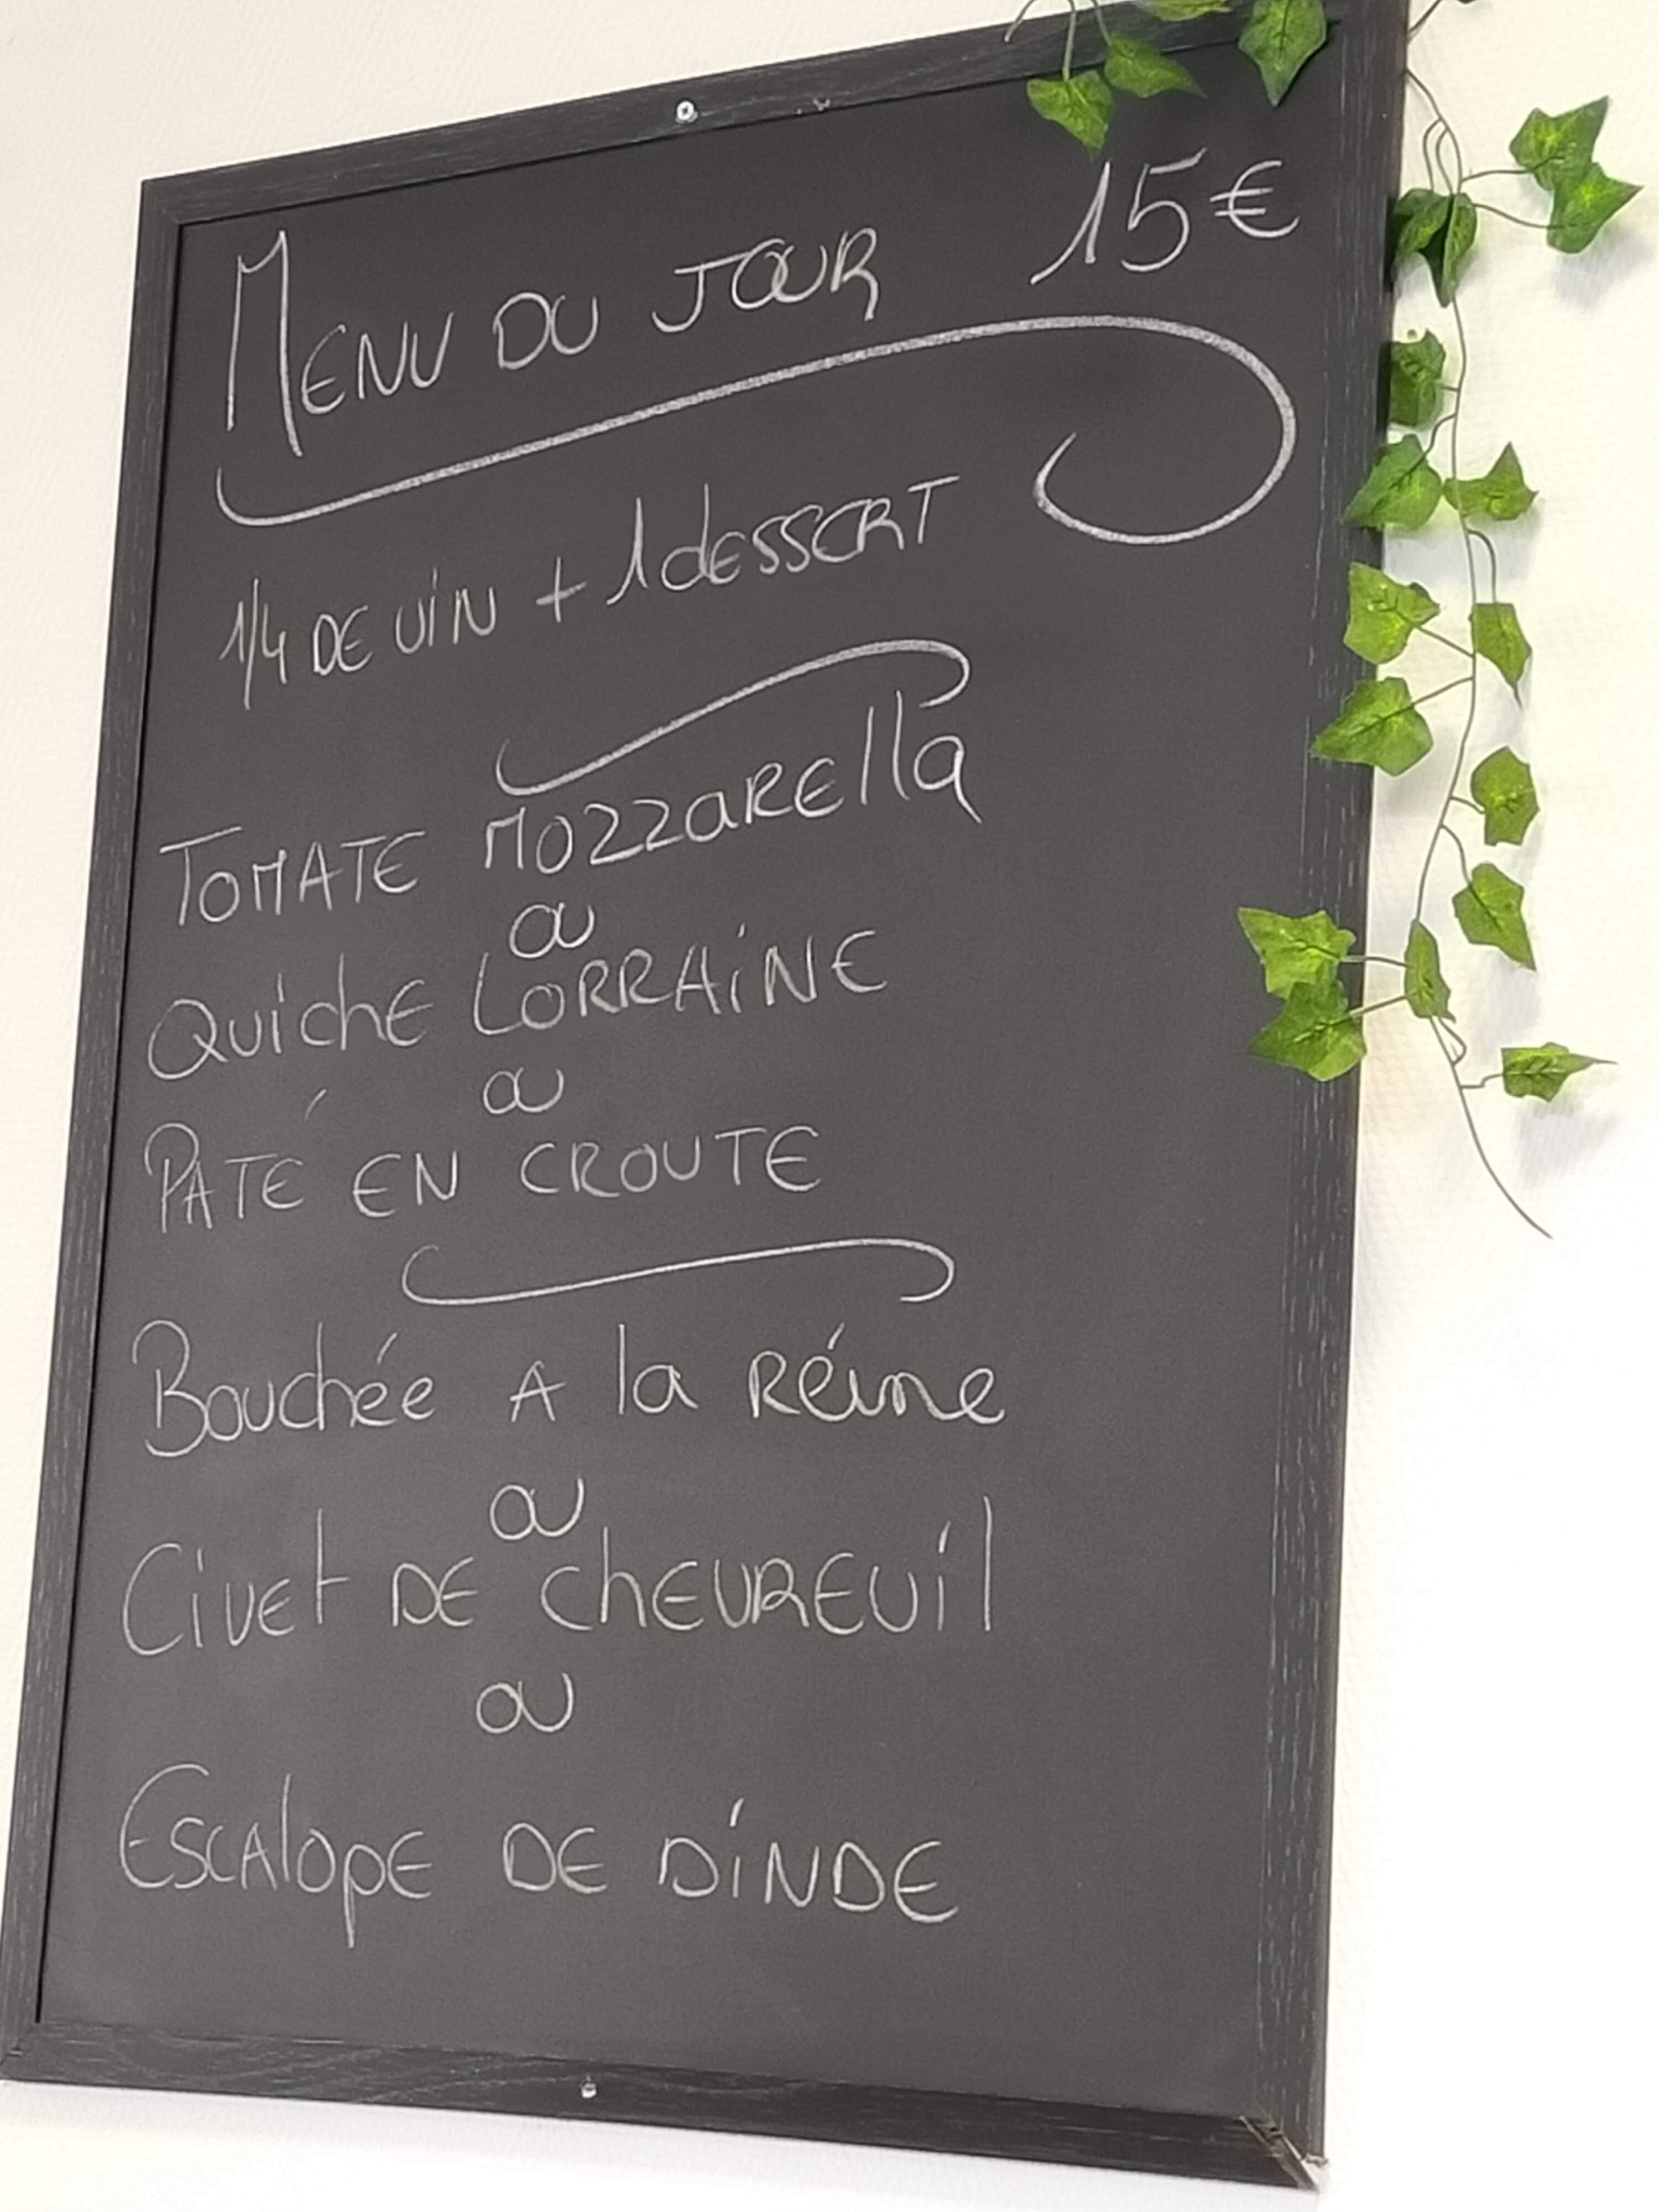 MENU DU JOUR 15€
1/4 DE VIN + 1 dESSERT
TOMATE MOZZARElla
OU
QUichE LORRAiNE
OU
PATÉ EN CROUTE
Bouchée A la Réine
OU
CivEt DE chEVREUil
OU
EscAlopE DE DiNDE